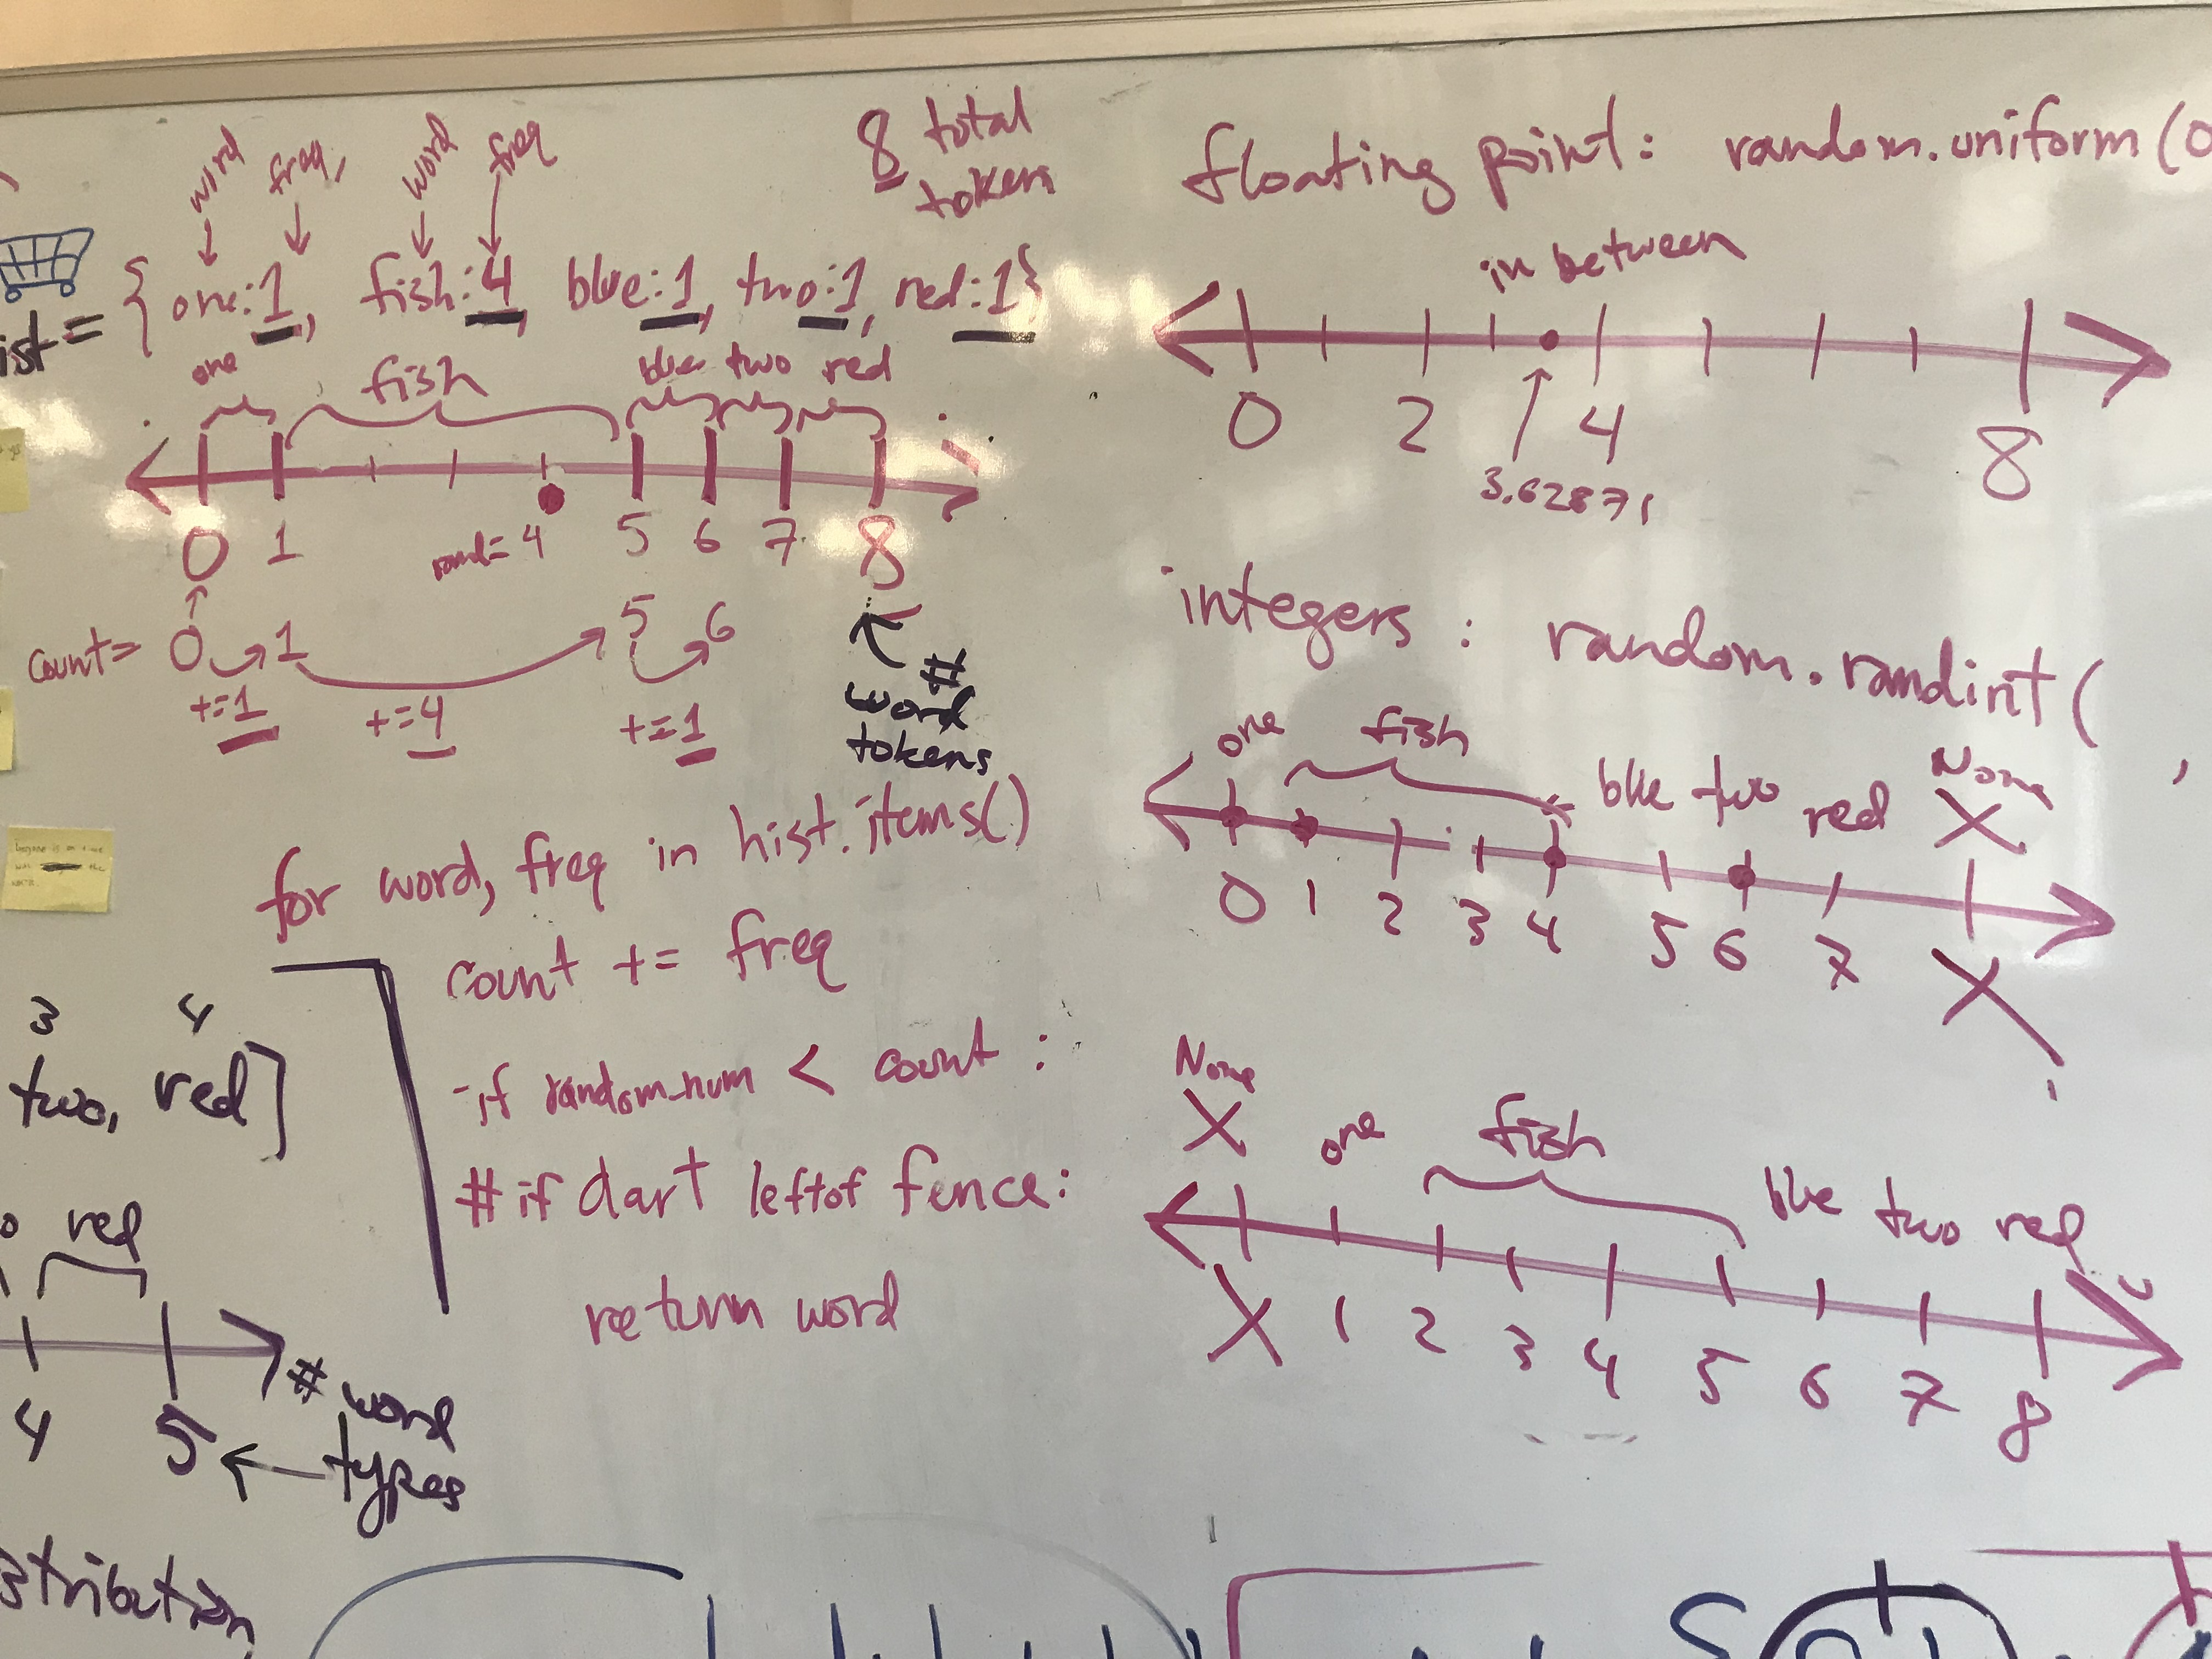 word freq, word freq
8 total
tokens
ist = { one:1, fish:4, blue:1, two:1, red:1}
one fish blue two red
0 1 rand=4 5 6 7 8
count= 0 1 5 6
+=1 +=4 +=1
# word
tokens
for word, freq in hist.items()
count += freq
-if random_num < count :
#if dart left of fence:
return word
3 4
two, red]
red
4 5
# word
types
stribution
floating point: random.uniform(0
in between
0 2 4 8
3.62871
integers : random.randint( ,
one fish blue two red None
X
0 1 2 3 4 5 6 7 X
None
X one fish blue two red
X 1 2 3 4 5 6 7 8